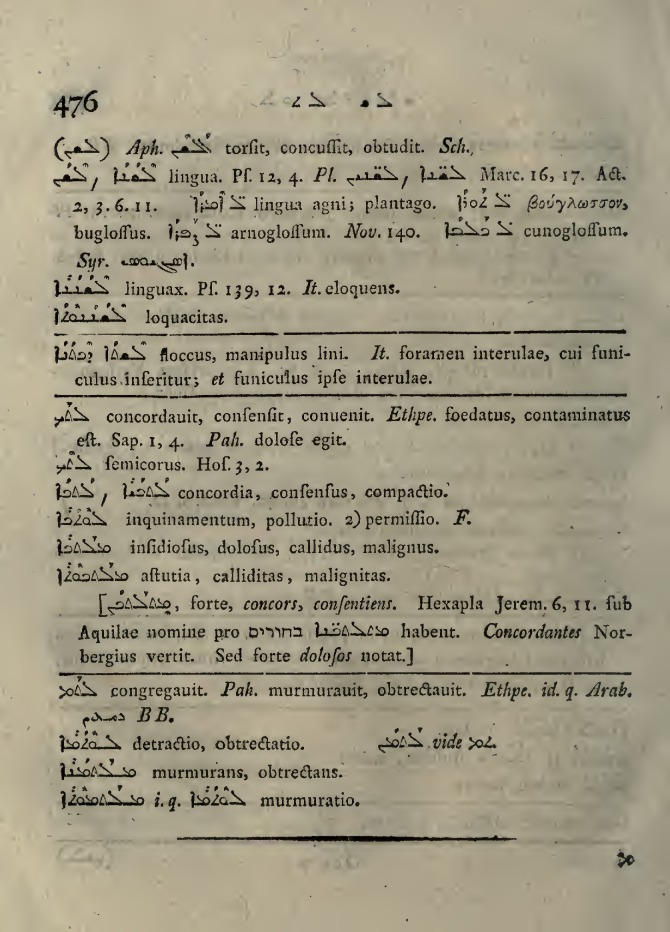 476 ܠܫ ܠܬ
(ܠܫܢ) Aph. torſit, concuſſit, obtudit. Sch.
ܠܫܢ, ܠܫܢܐ lingua. Pſ. 12, 4. Pl. ܠܫܢܝܢ, ܠܫܢܐ Marc. 16, 17. Act.
2, 3. 6. 11. ܠ ܐܡܪܐ lingua agni; plantago. ܠ ܬܘܪܐ βούγλωσσον,
bugloſſus. ܠ arnogloſſum. Nov. 140. ܠ ܟܠܒܐ cunogloſſum.
Syr.
ܠܫܢܢܐ linguax. Pſ. 139, 12. It. eloquens.
ܠܫܢܢܘܬܐ loquacitas.
ܕܟܬܢܐ floccus, manipulus lini. It. foramen interulae, cui funi-
culus inſeritur; et funiculus ipſe interulae.
ܠܬܟ concordauit, conſenſit, conuenit. Ethpe. foedatus, contaminatus
eſt. Sap. 1, 4. Pah. doloſe egit.
ܠܬܟ ſemicorus. Hoſ. 3, 2.
concordia, conſenſus, compactio.
ܠܘܬܟܐ inquinamentum, pollutio. 2) permiſſio. F.
ܡܠܬܟܐ inſidioſus, doloſus, callidus, malignus.
ܡܠܬܟܘܬܐ aſtutia, calliditas, malignitas.
[, forte, concors, conſentiens. Hexapla Jerem. 6, 11. ſub
Aquilae nomine pro בחורים habent. Concordantes Nor-
bergius vertit. Sed forte doloſos notat.]
ܠܬܡ congregauit. Pah. murmurauit, obtrectauit. Ethpe. id. q. Arab.
BB.
ܠܘܬܡܐ detractio, obtrectatio. vide
ܡܠܬܡܢܐ murmurans, obtrectans.
i. q. ܠܘܬܡܐ murmuratio.